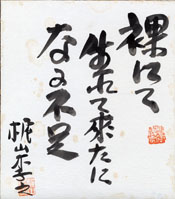 裸にて
生れて来たに
なに不足
梶山季之